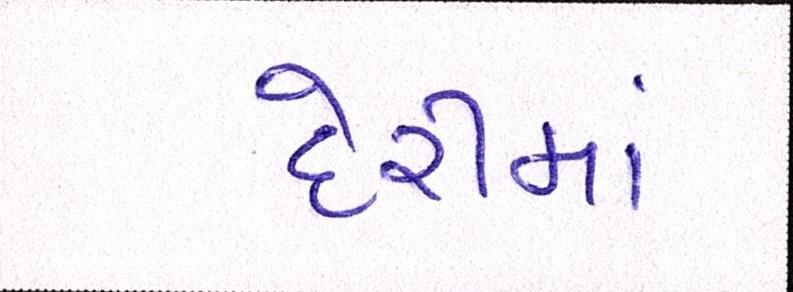 દેરીમાં